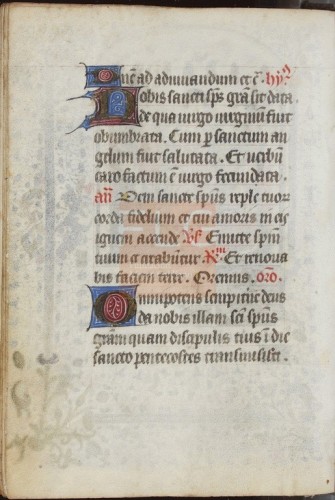 Dne ad adiuuandum et c̄. hyꝰ
Nobis sancti sp̄s gr̄a sit data.
de qua uirgo uirginū fuit
obumbrata. Cum ꝑ sanctum an
gelum fuit salutata. Et uerbū
caro factum ē uirgo fecundata.
añ Veni sancte sp̄us reple tuor
corda fidelium et tui amoris in eis
ignem accende. v̄s Emitte sp̄m
tuum ⁊ creabūtur. R̄ Et renoua
bis faciem terre. Oremus. oro.
Omnipotens sempit̄ne deus
da nobis illam sc̄i sp̄us
gr̄am quam discipulis tuis ī die
sancto pentecostes transmisisti.